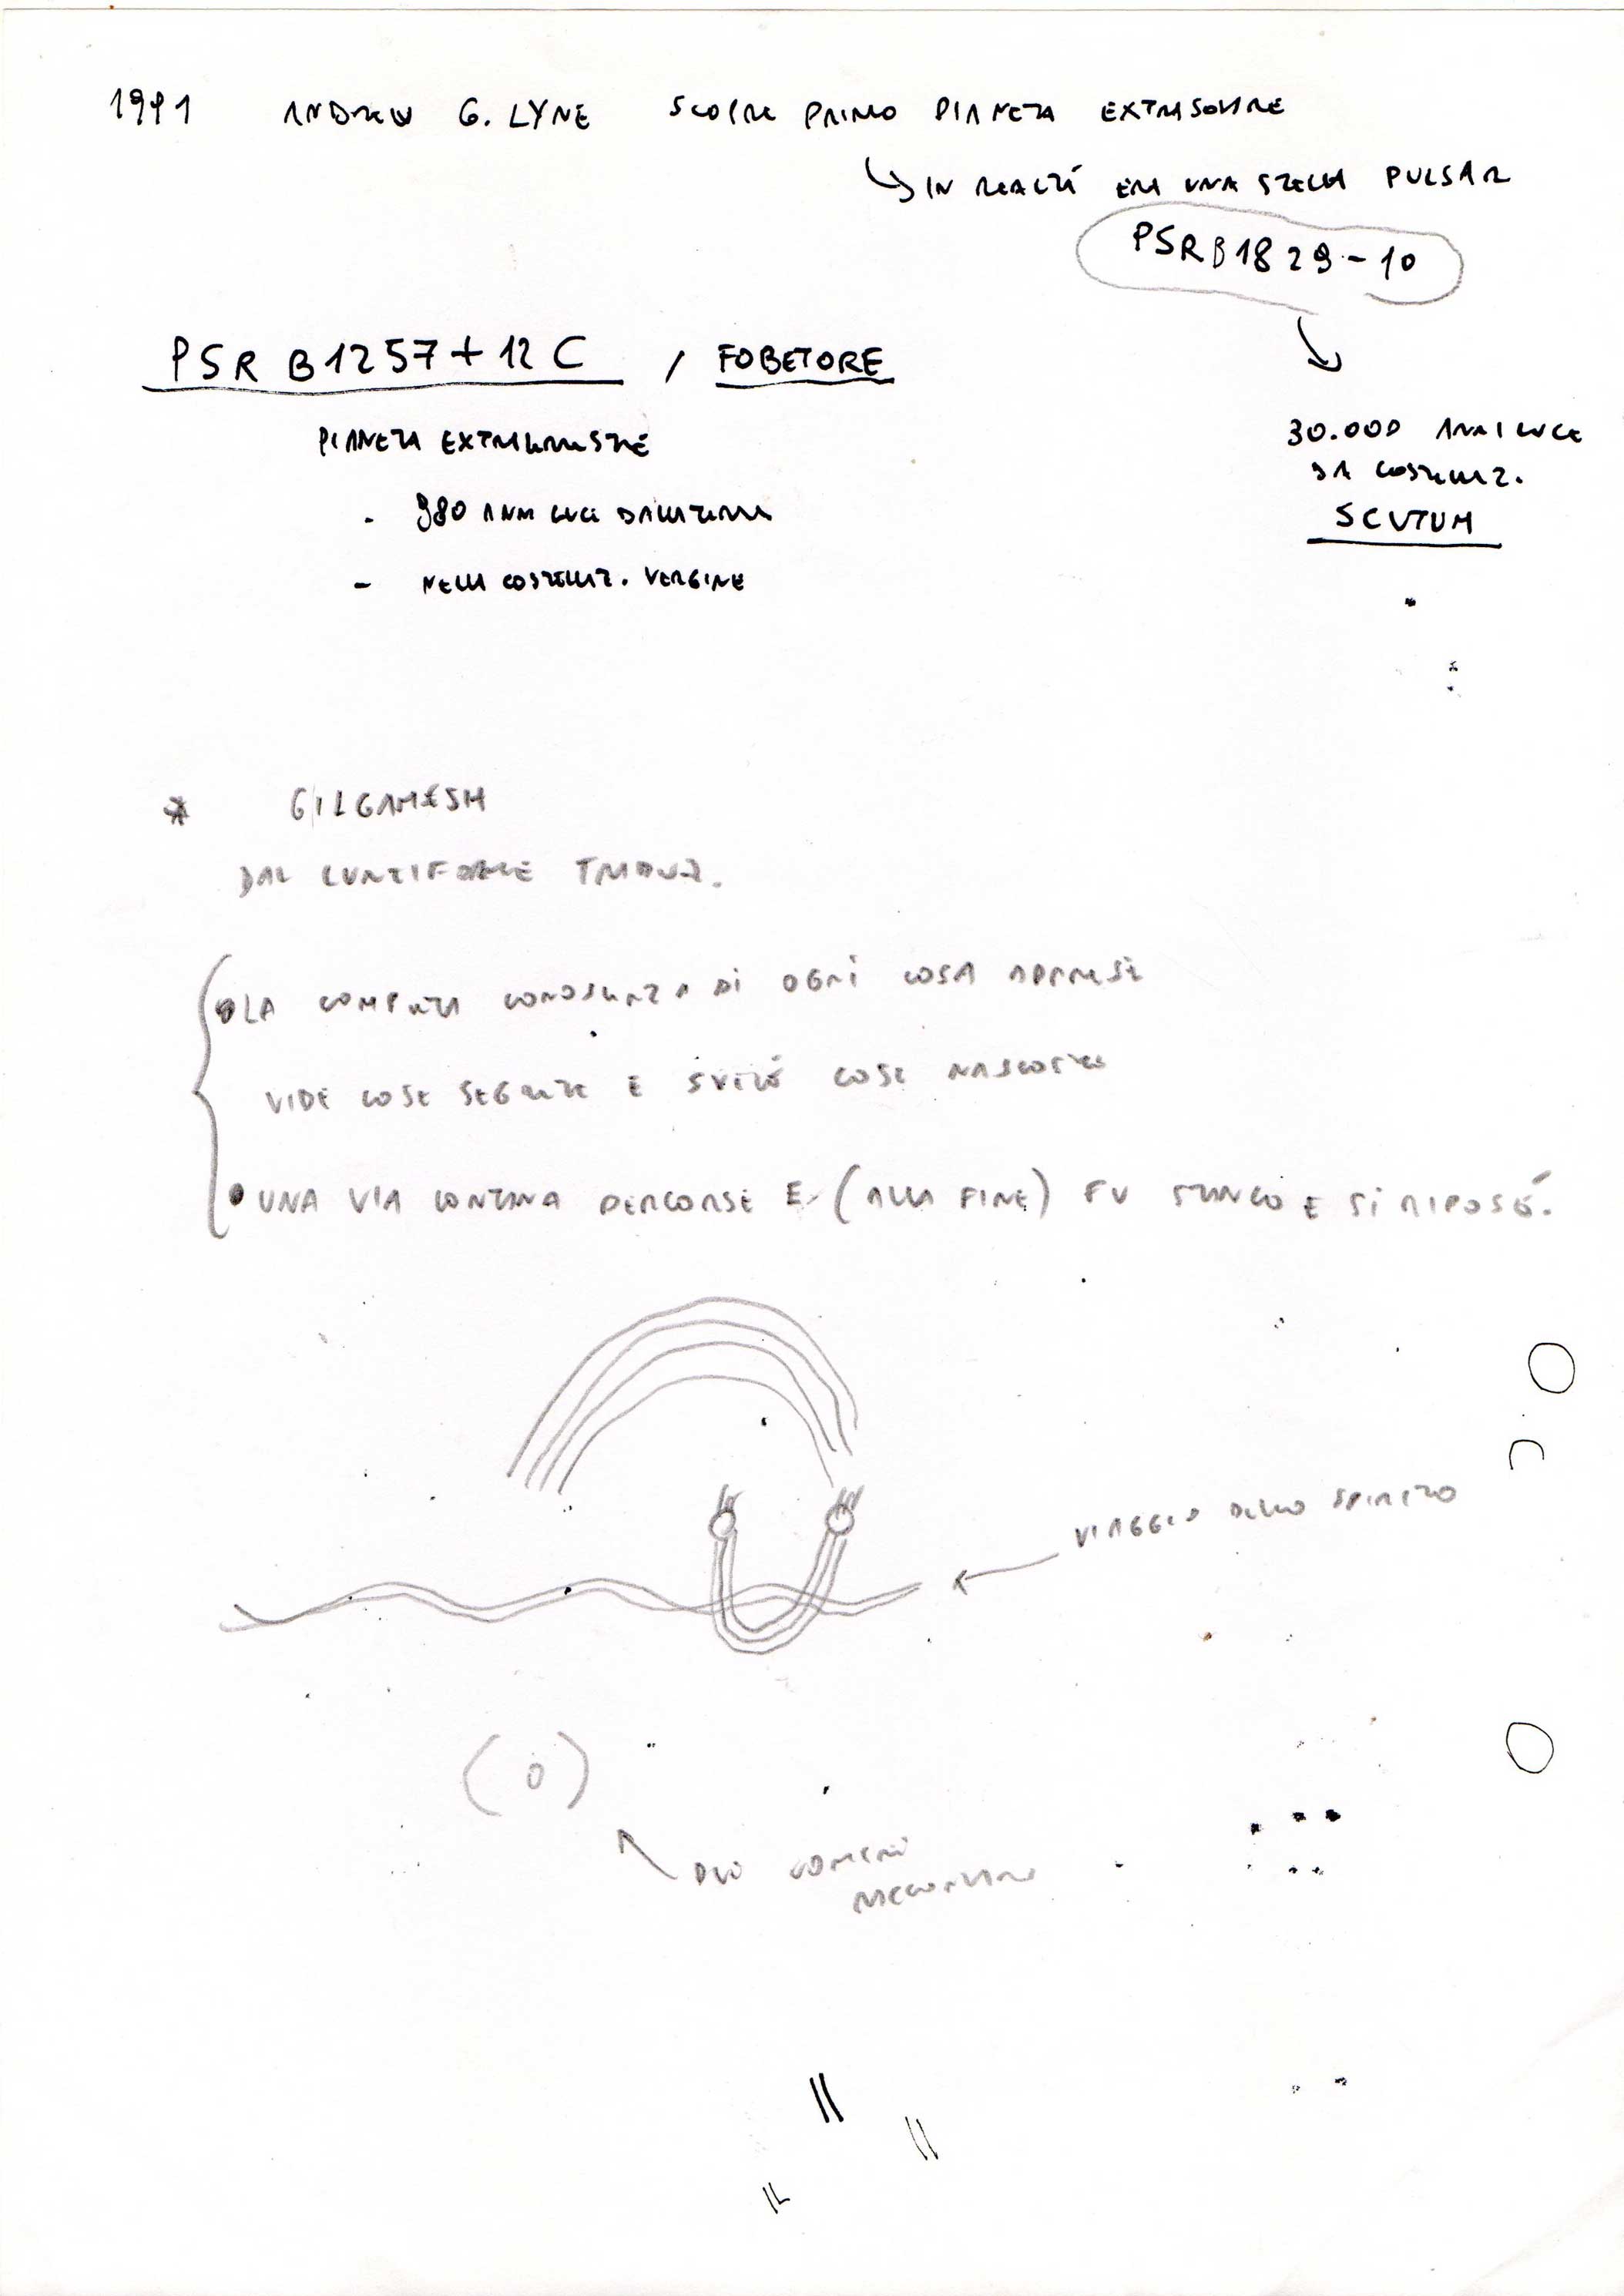 1991 ANDREW G. LYNE SCOPRE PRIMO PIANETA EXTRASOLARE
IN REALTÁ ERA UNA STELLA PULSAR
PSRB1829-10
PSR B1257+12 C / FOBETORE
PIANETA EXTRATERRESTRE
30.000 ANNI LUCE
DA COSTELLAZ.
SCUTUM
- 980 ANNI LUCE DALLA TERRA
- NELLA COSTELLAZ. VERGINE
* GILGAMESH
DAL CUNEIFORME TRADUZ.
LA COMPLETA CONOSCENZA DI OGNI COSA APPRESE
VIDE COSE SEGRETE E SVELÓ COSE NASCOSTE
UNA VIA LONTANA PERCORSE E (ALLA FINE) FU STANCO E SI RIPOSÓ.
VIAGGIO DELLO SPIRITO
(0)
DUE UOMINI